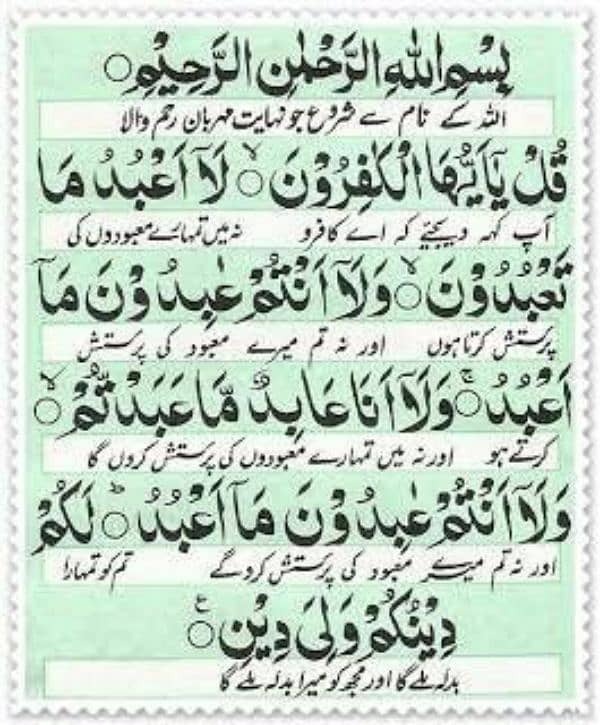 بِسْمِ اللهِ الرَّحْمٰنِ الرَّحِيْمِ ○
اللہ کے نام سے شروع جو نہایت مہربان رحم والا
قُلْ يٰۤاَيُّهَا الْكٰفِرُوْنَ ○ۙ لَاۤ اَعْبُدُ مَا
آپ کہہ دیجیئے کہ اے کافرو نہ میں تمہارے معبودوں کی
تَعْبُدُوْنَ ○ۙ وَلَاۤ اَنْتُمْ عٰبِدُوْنَ مَاۤ
پرستش کرتا ہوں اور نہ تم میرے معبود کی پرستش
اَعْبُدُ ○ۚ وَلَاۤ اَنَا عَابِدٌ مَّا عَبَدْتُّمْ ○ۙ
کرتے ہو اور نہ میں تمہارے معبودوں کی پرستش کروں گا
وَلَاۤ اَنْتُمْ عٰبِدُوْنَ مَاۤ اَعْبُدُ ○ؕ لَكُمْ
اور نہ تم میرے معبود کی پرستش کروگے تم کو تمہارا
دِيْنُكُمْ وَلِيَ دِيْنِ ○ع
بدلہ ملے گا اور مجھ کو میرا بدلہ ملے گا